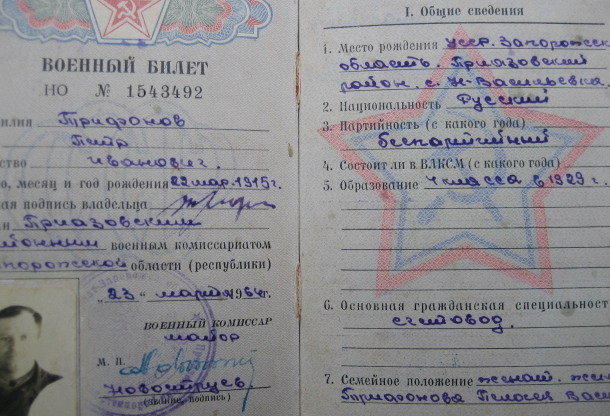 ВОЕННЫЙ БИЛЕТ
НО № 1543492
илия Трифонов
Петр
ство Иванович.
о, месяц и год рождения 22 мар. 1915 г.
ая подпись владельца
н Приазовским
айонным военным комиссариатом
апорожской области (республики)
„23" марта 1964 г.
ВОЕННЫЙ КОМИССАР
майор
М. П.
(звание, подпись)
I. Общие сведения
1. Место рождения УССР. Запорожск
область Приазовский
район. с. Н-Васильевка.
2. Национальность Русский
3. Партийность (с какого года)
беспартийный
4. Состоит ли в ВЛКСМ (с какого года)
5. Образование 4 класса в 1929 г.
6. Основная гражданская специальност
счетовод.
7. Семейное положение женат. же
Трифонова Пелагея Вас